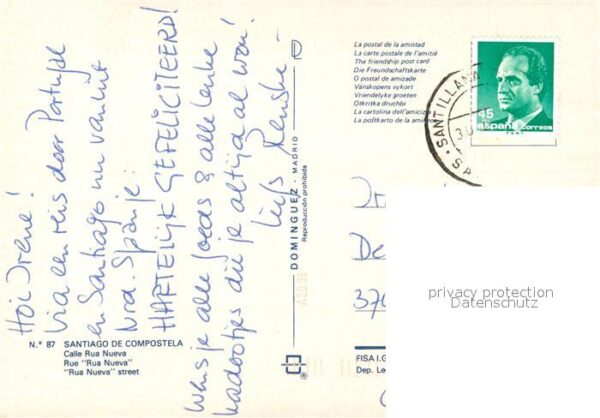 Hoi Irene!
Via een reis door Portugal
en Santiago nu vanuit
Nrd. Spanje:
HARTELIJK GEFELICITEERD!
Wens je alle goeds & alle leuke
kadootjes die je altijd al won!
Liefs Renske -
N.º 87 SANTIAGO DE COMPOSTELA
Calle Rua Nueva
Rue "Rua Nueva"
"Rua Nueva" street
DOMINGUEZ - MADRID
Reproducción prohibida
La postal de la amistad
La carte postale de l'amitié
The friendship post card
Die Freundschaftskarte
O postal de amizade
Vänskapens vykort
Vriendelyke groeten
Otkritka druchbi
La cartolina dell'amicizia
La poštkarta de la
45
España correos
SANTILLANA
30
SA
De
370
privacy protection
Datenschutz
FISA I.G.
Dep. Le